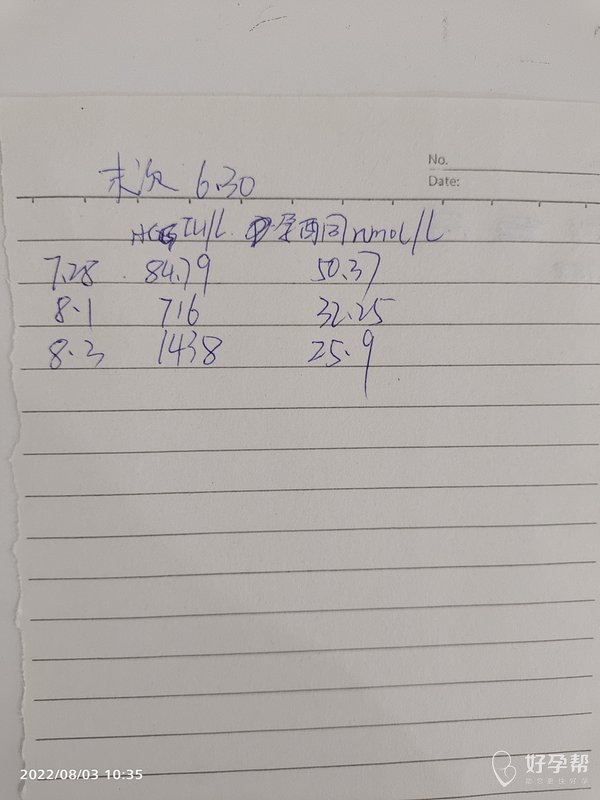 No.
Date:
末次 6.30
HCG IU/L 孕酮 nmol/L
7.28 84.79 50.37
8.1 716 32.25
8.3 1438 25.9
2022/08/03 10:35
好孕帮